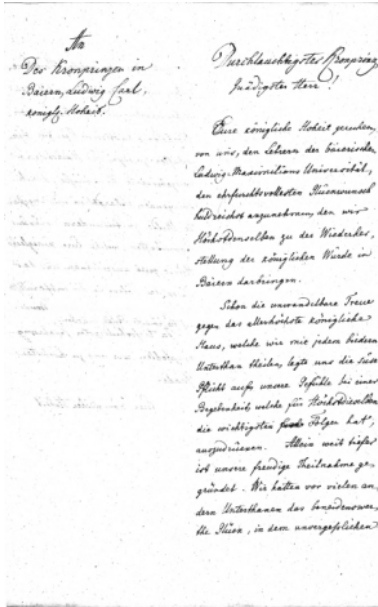 An
Des Kronprinzen in
Baiern, Ludwig Carl,
königl. Hoheit.
Durchlauchtigster Kronprinz
Gnädigster Herr!
Eure königliche Hoheit geruhen,
von uns, den Lehrern der baierischen
Ludwig-Maximilians Universität,
den ehrfurchtvollesten Glückwunsch
huldreichst anzunehmen, den wir
Höchstdenselben zu der Wiederher,
stellung der königlichen Würde in
Baiern darbringen.
Schon die unwandelbare Treue
gegen das allerhöchste königliche
Haus, welche wir mit jedem biedern
Unterthan theilen, legte uns die süße
Pflicht auf, unsere Gefühle bei einer
Begebenheit, welche für Höchstdieselben
die wichtigsten Folgen hat,
auszudrücken. Allein weit tiefer
ist unsere freudige Theilnahme ge,
gründet. Wir hatten vor vielen an,
dern Unterthanen das beneidenswer,
the Glück, in dem unvergeßlichen